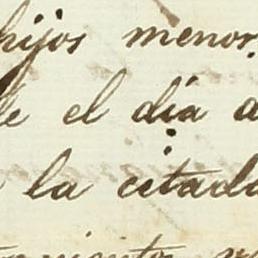 hijos menor
de el día a
la citada